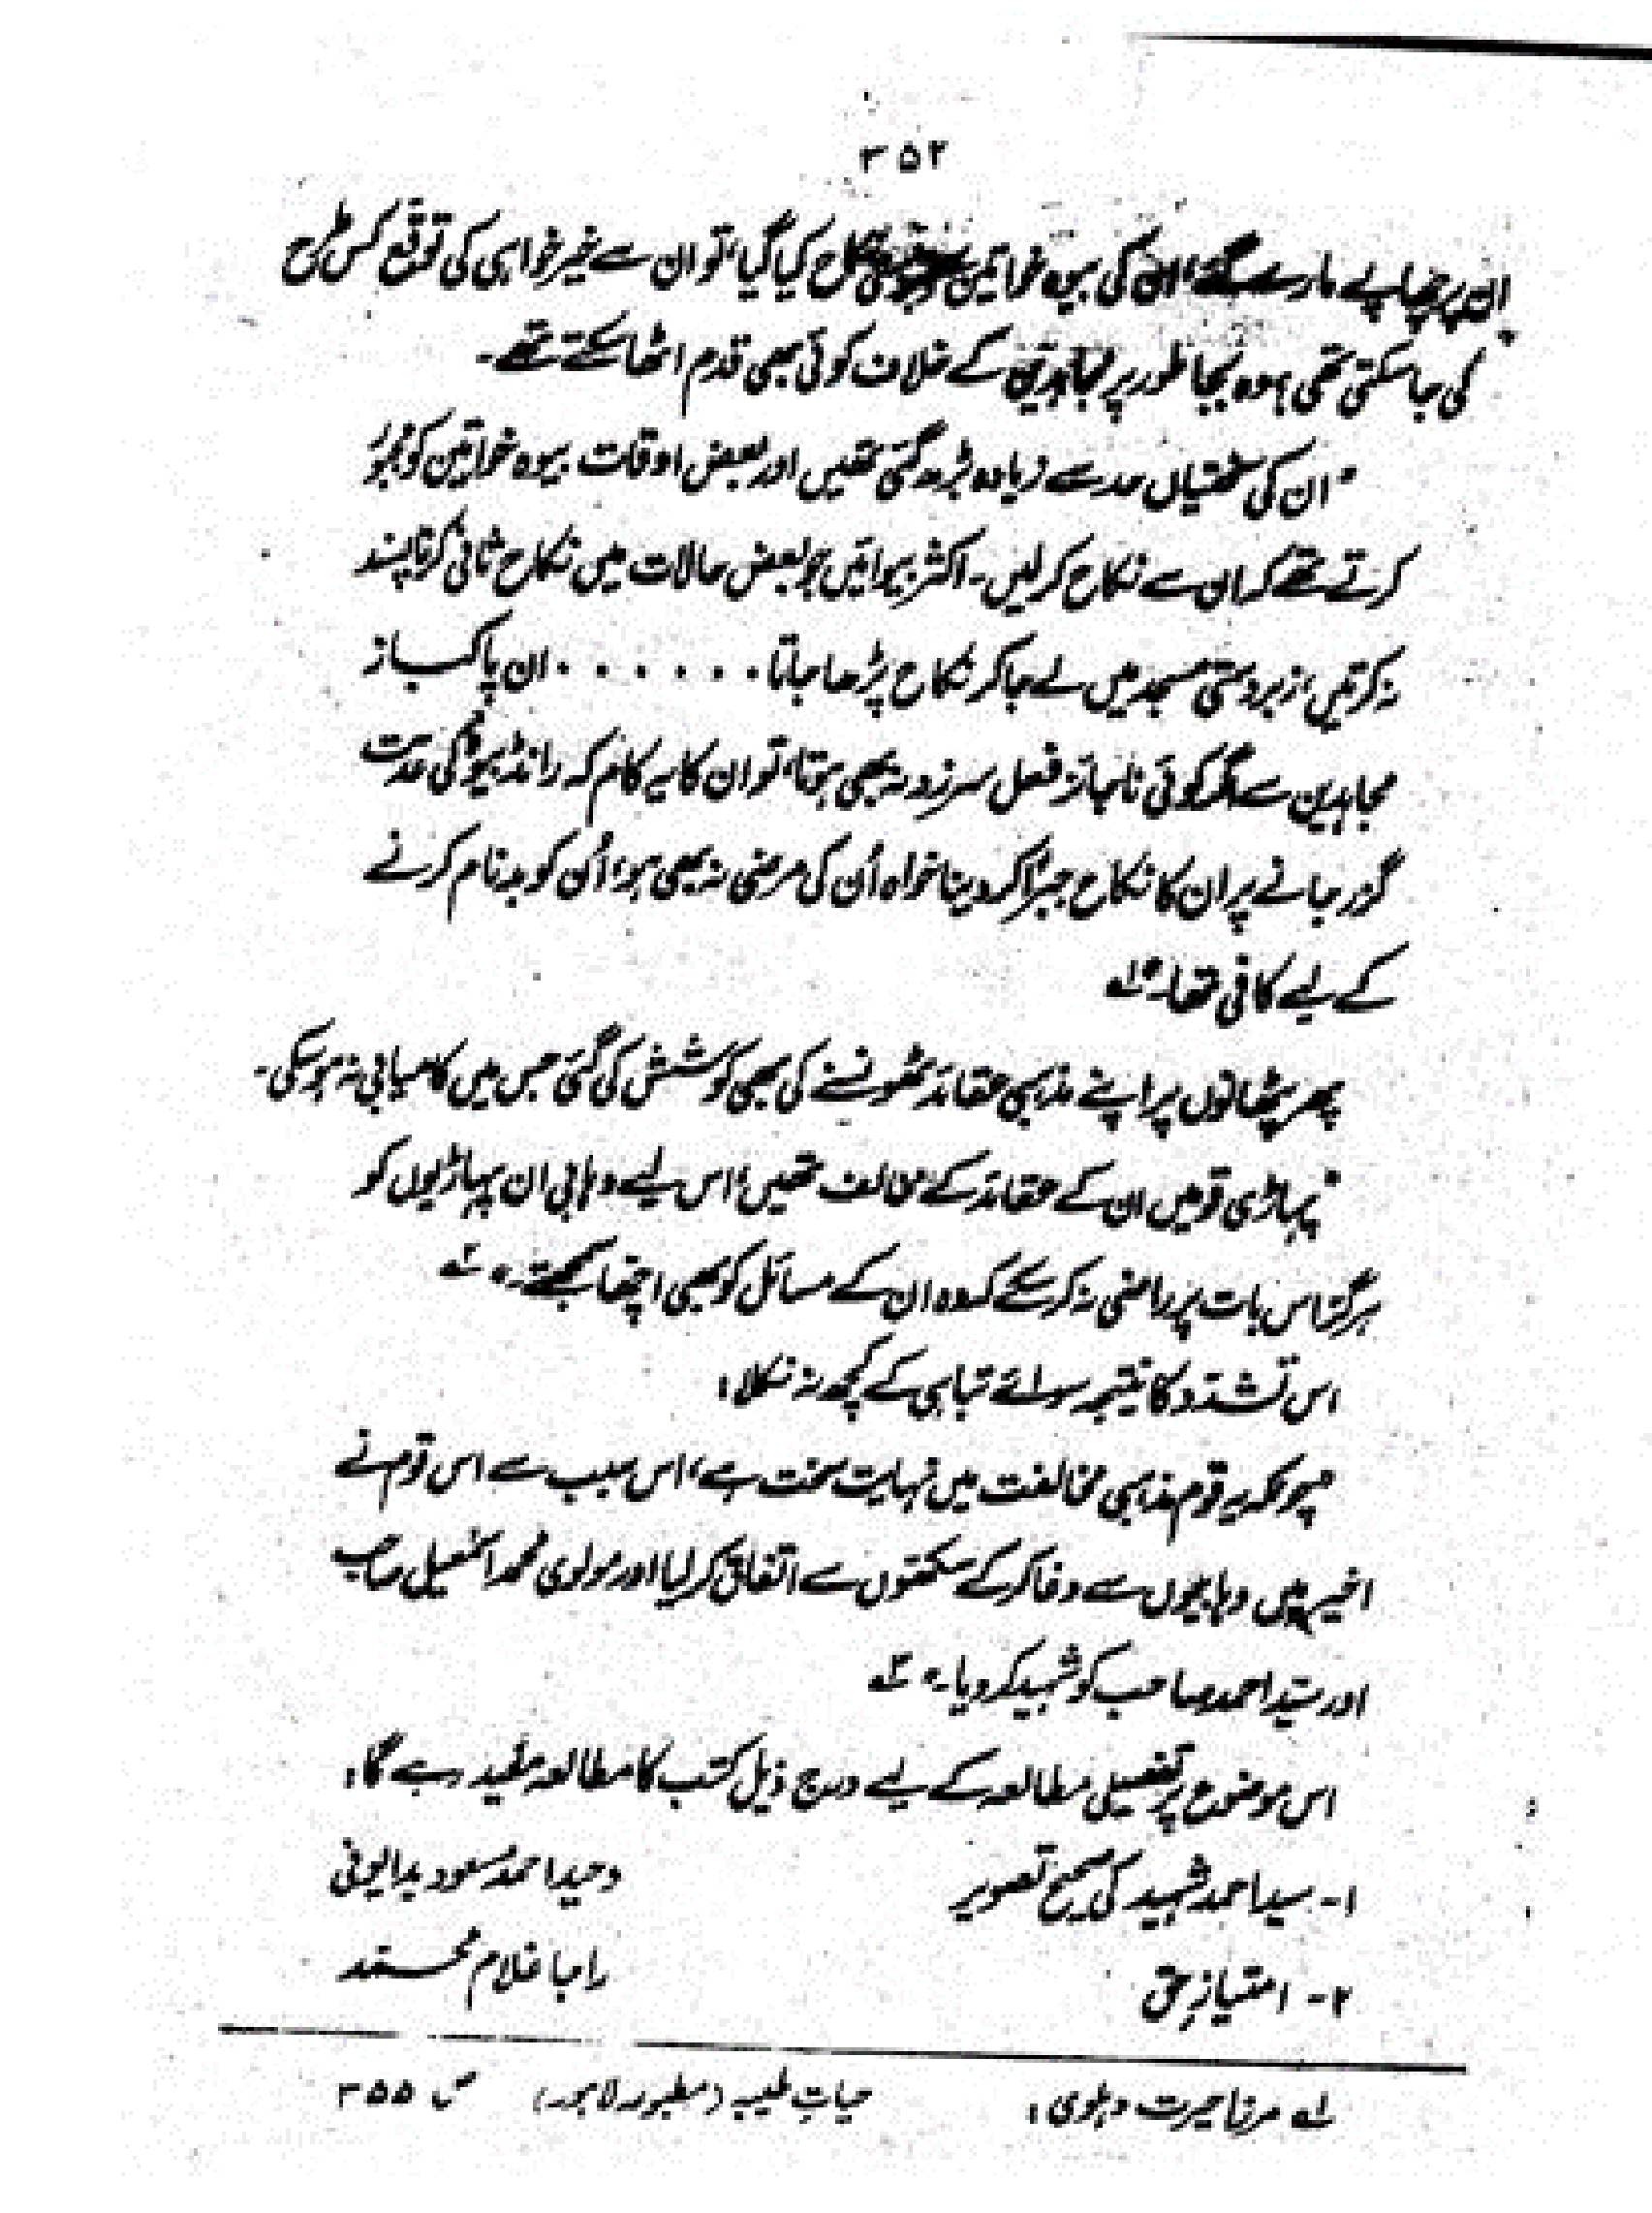 ۳۵۲
ان پر چھاپے مارے گئے، ان کی بیوہ خواتین سے نکاح کیا گیا، تو ان سے خیر خواہی کی توقع کس طرح
کی جا سکتی تھی، وہ بجا طور پر مجاہدین کے خلاف کوئی بھی قدم اٹھا سکتے تھے۔
"ان کی سختیاں حد سے زیادہ بڑھ گئی تھیں اور بعض اوقات بیوہ خواتین کو مجبور
کرتے تھے کہ ان سے نکاح کر لیں۔ اکثر بیوائیں جو بعض حالات میں نکاح ثانی کرنا پسند
نہ کرتیں، زبردستی مسجد میں لے جا کر نکاح پڑھا جاتا ۔۔۔۔۔۔ ان پاکباز
مجاہدین سے اگر کوئی ناجائز فعل سرزد نہ بھی ہوتا، تو ان کا یہ کام کہ رانڈ بیوہ کی عدت
گزر جانے پر ان کا نکاح جبراً کر دینا خواہ اُن کی مرضی نہ بھی ہو، اُن کو بدنام کرنے
کے لیے کافی تھا۔" لہ
پھر پٹھانوں پر اپنے مذہبی عقائد ٹھونسنے کی بھی کوشش کی گئی جس میں کامیابی نہ ہو سکی۔
"پہاڑی قومیں ان کے عقائد کے مخالف تھیں، اس لیے وہابی ان پہاڑیوں کو
ہرگز اس بات پر راضی نہ کر سکے کہ وہ ان کے مسائل کو بھی اچھا سمجھتے۔" ۲ہ
اس تشدد کا نتیجہ سوائے تباہی کے کچھ نہ نکلا:
چونکہ یہ قوم مذہبی مخالفت میں نہایت سخت ہے، اس سبب سے اس قوم نے
اخیر میں وہابیوں سے دغا کر کے سکھوں سے اتفاق کر لیا اور مولوی محمد اسمٰعیل صاحب
اور سید احمد صاحب کو شہید کر دیا۔" ۳ہ
اس موضوع پر تفصیلی مطالعہ کے لیے درج ذیل کتب کا مطالعہ مفید رہے گا:
۱- سید احمد شہید کی صحیح تصویر وحید احمد مسعود بدایونی
۲- امتیازِ حق راجا غلام محمد
لہ مرزا حیرت دہلوی: حیاتِ طیبہ (مطبوعہ لاہور) ص ۳۵۵